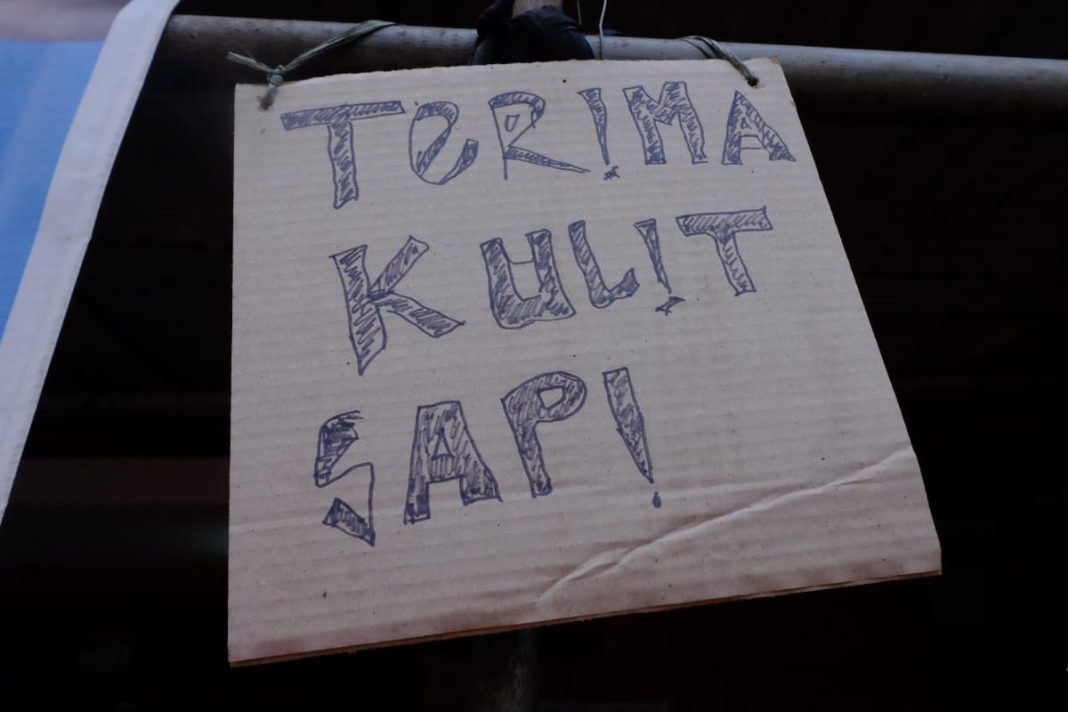 TeR!MA
KUL!T
SAP!